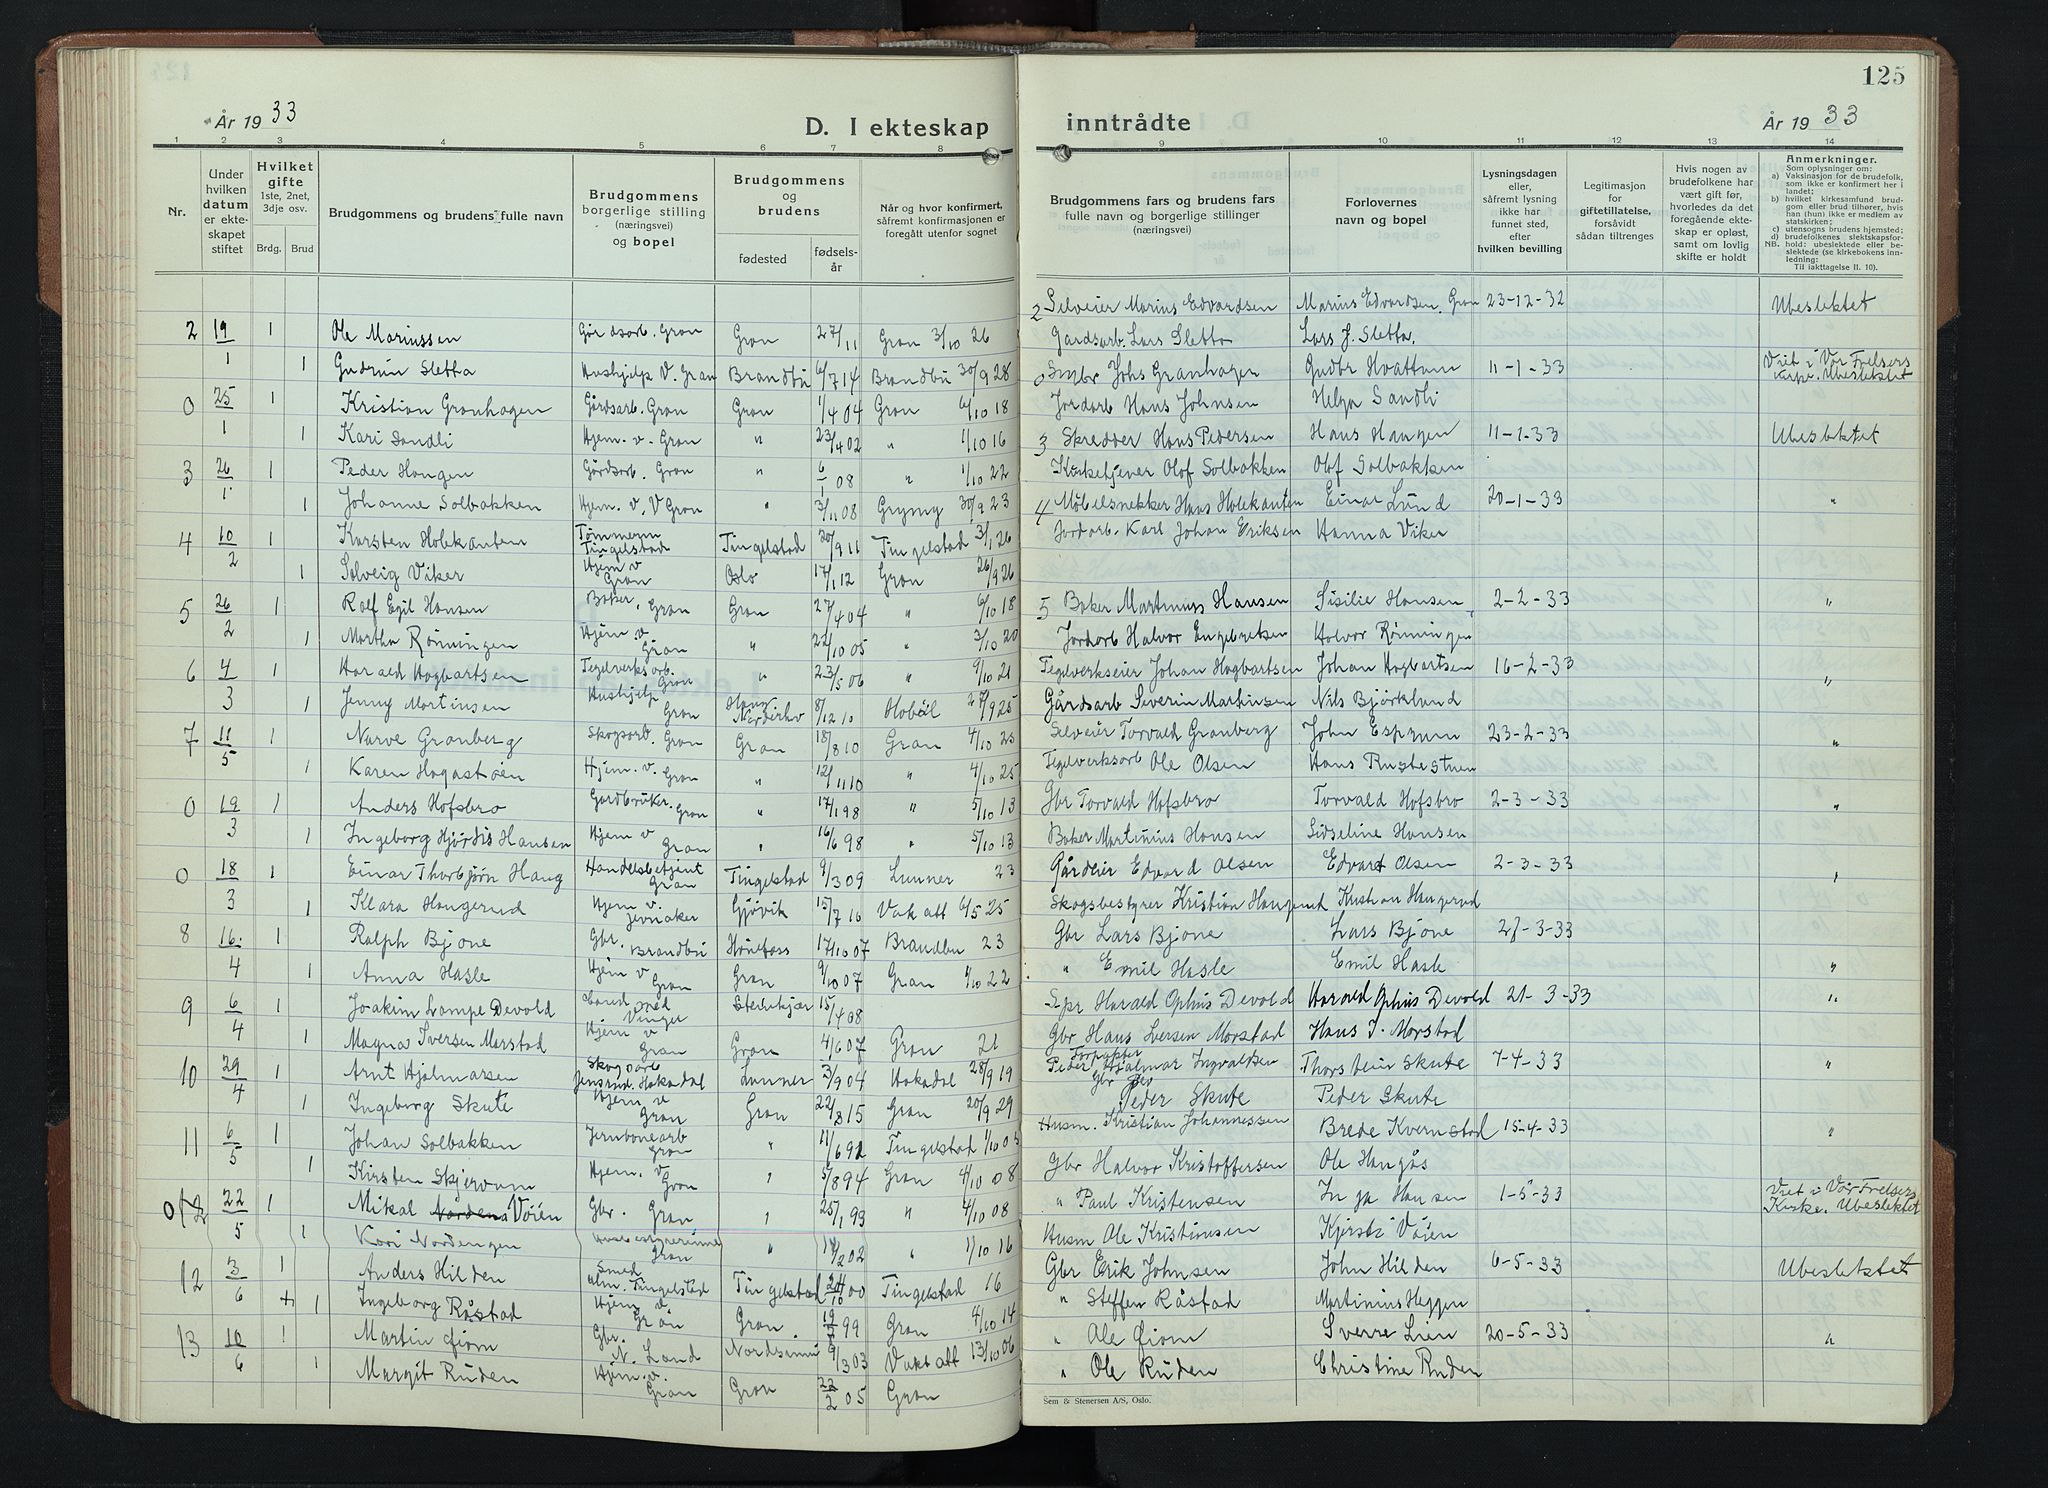 125
År 1933
D. I ekteskap inntrådte
År 1933
1 2 3 4 5 6 7 8 9 10 11 12 13 14
Nr.
Under hvilken datum er ekteskapet stiftet
Hvilket gifte 1ste, 2net, 3dje osv.
Brdg. Brud
Brudgommens og brudens fulle navn
Brudgommens borgerlige stilling (næringsvei) og bopel
Brudgommens og brudens
fødested fødselsår
Når og hvor konfirmert, såfremt konfirmasjonen er foregått utenfor sognet
Brudgommens fars og brudens fars fulle navn og borgerlige stillinger (næringsvei)
Forlovernes navn og bopel
Lysningsdagen eller, såfremt lysning ikke har funnet sted, efter hvilken bevilling
Legitimasjon for giftetillatelse, forsåvidt sådan tiltrenges
Hvis nogen av brudefolkene har vært gift før, hvorledes da det foregående ekteskap er opløst, samt om lovlig skifte er holdt
Anmerkninger.
Som oplysninger om:
a) Vaksinasjon for de brudefolk, som ikke er konfirmert her i landet;
b) hvilket kirkesamfund brudgom eller brud tilhører, hvis han (hun) ikke er medlem av statskirken;
c) utensogns brudens hjemsted;
d) brudefolkenes slektskapsforhold: ubeslektede eller beslektede (se kirkebokens innledning:
NB.
Til iakttagelse II. 10).
2 19/1 1 Ole Mariussen Gårdsarb. Gran Gran 27/11 Gran 3/10 26
1 Gudrun Sletta Hushjelp V. Gran Brandbu 6/7 14 Brandbu 30/9 28
0 25/1 1 Kristian Granhagen Gårdsarb. Gran Gran 1/4 04 Gran 6/10 18
1 Kari Sandli Hjem. v. Gran " 23/4 02 " 1/10 16
3 26/1 1 Peder Haugen Gårdsarb. Gran " 6/1 08 " 1/10 22
1 Johanne Solbakken Hjem. v. V Gran " 3/11 08 Grymyr 30/9 23
4 10/2 1 Karsten Holekanten Tømmerm Tingelstad Tingelstad 20/9 11 Tingelstad 3/1 26
1 Solveig Viker Hjem v Gran Oslo 17/1 12 Gran 26/9 26
5 26/2 1 Rolf Egil Hansen Baker, Gran Gran 27/4 04 " 6/10 18
1 Martha Rønningen Hjem v. Gran " 22/10 05 " 3/10 20
6 4/3 1 Harald Hogbartsen Tegelverksarb. Gran " 23/5 06 " 9/10 21
1 Jenny Martinsen Hushjelp Gran Norderhov 8/12 10 Hobøl 27/9 25
7 11/5 1 Narve Granberg Skogsarb. Gran Gran 18/8 10 Gran 4/10 25
1 Karen Hagastøen Hjem. v. Gran " 12/11 10 " 4/10 25
0 19/3 1 Anders Hofsbro Gardbruker. Gran " 17/1 98 " 5/10 13
1 Ingeborg Hjørdis Hansen Hjem v Gran " 16/6 98 " 5/10 13
0 18/3 1 Einar Thorbjørn Haug Handelsbetjent Gran Tingelstad 9/3 09 Lunner 23
1 Klara Haugerud Hjem v. Jevnaker Gjøvik 15/7 16 Vak att 6/5 25
8 16/4 1 Ralph Bjone Gbr. Brandbu Hønefoss 17/10 07 Brandbu 23
1 Anna Hasle Hjem v Gran Gran 9/10 07 Gran 1/10 22
9 6/4 1 Joakim Lampe Devold Vinger Stenkjær 15/4 08
1 Magna Iversen Morstad Hjem v Gran Gran 4/6 07 Gran 21
10 29/4 1 Arnt Hjalmarsen Skogsarb Jensrud. Hakadal Lunner 3/9 04 Hakadal 28/9 19
1 Ingeborg Skute Hjem v Gran Gran 22/8 15 Gran 20/9 29
11 6/5 1 Johan Solbakken Jernbanearb Gran " 11/6 92 Tingelstad 1/10 03
1 Kirsten Skjervum Hjem. v Gran " 5/8 94 Gran 4/10 08
0 12 22/5 1 Mikal Nordena Vøien Gbr. Gran " 25/1 93 " 4/10 08
1 Kari Nordengen Husbestyrerinne Gran " 14/2 02 " 1/10 16
12 3/6 1 Anders Hilden Smed alm. Tingelstad Tingelstad 24/10 00 Tingelstad 16
+ 1 Ingeborg Råstad Hjem v. Gran Gran 19/7 99 Gran 4/10 14
13 10/6 1 Martin Gjom Gbr. N. Land Nordsinni 9/3 03 Vaks att 13/10 06
1 Margit Ruden Hjem. v. Gran Gran 22/2 05 Gran
2 Selveier Marius Edvardsen Marius Edvardsen, Gran 23-12-32 Ubeslektet
Gardsarb. Lars Sletta Lars J. Sletta.
0 Smbr Johs Granhagen Gudbr Hvattum 11-1-33 Viet i Vår Frelsers kirke. Ubeslektet
Jordarb Hans Johnsen Helga Sandli
3 Skredder Hans Pedersen Hans Haugen 11-1-33 Ubeslektet
Kirketjener Olof Solbakken Olof Solbakken
4 Møbelsnekker Hans Holekanten Einar Lund 20-1-33 "
Jordarb. Karl Johan Eriksen Hanna Viker
5 Baker Martinus Hansen Sisilie Hansen 2-2-33 "
Jordarb Halvor Engebretsen Halvor Rønningen
Tegelverkseier Johan Hogbartsen Johan Hogbartsen 16-2-33 "
Gårdsarb Severin Martinsen Nils Bjørklund
Selveier Torvald Granberg John Esprum 23-2-33 "
Tegelverksarb Ole Olsen Hans Rustestuen
Gbr Torvald Hofsbro Torvald Hofsbro 2-3-33 "
Baker Martinius Hansen Sidseline Hansen
Gårdeier Edvard Olsen Edvard Olsen 2-3-33 "
Skogsbestyrer Kristian Haugerud Kristian Haugerud
Gbr Lars Bjone Lars Bjone 27-3-33
" Emil Hasle Emil Hasle "
Harald Ophus Devold Harald Ophus Devold 21-3-33 "
Gbr Hans Iversen Morstad Hans I. Morstad
Forpakter Peder Hjalmar Ingvaldsen Thorstein Skute 7-4-33 "
Gbr Peder Skute Peder Skute
Husm. Kristian Johannessen Brede Kvernstad 15-4-33 "
Gbr Halvor Kristoffersen Ole Haugås
" Paul Kristensen Inga Hansen 1-5-33 Viet i Vår Frelsers Kirke. Ubeslektet
Husm Ole Kristiansen Kjersti Vøien
Gbr Erik Johnsen John Hilden 6-5-33 Ubeslektet
" Steffen Råstad Martinius Heggen
" Ole Gjom Sverre Lien 20-5-33 "
" Ole Ruden Christine Ruden
Sem & Stenersen A/S, Oslo.